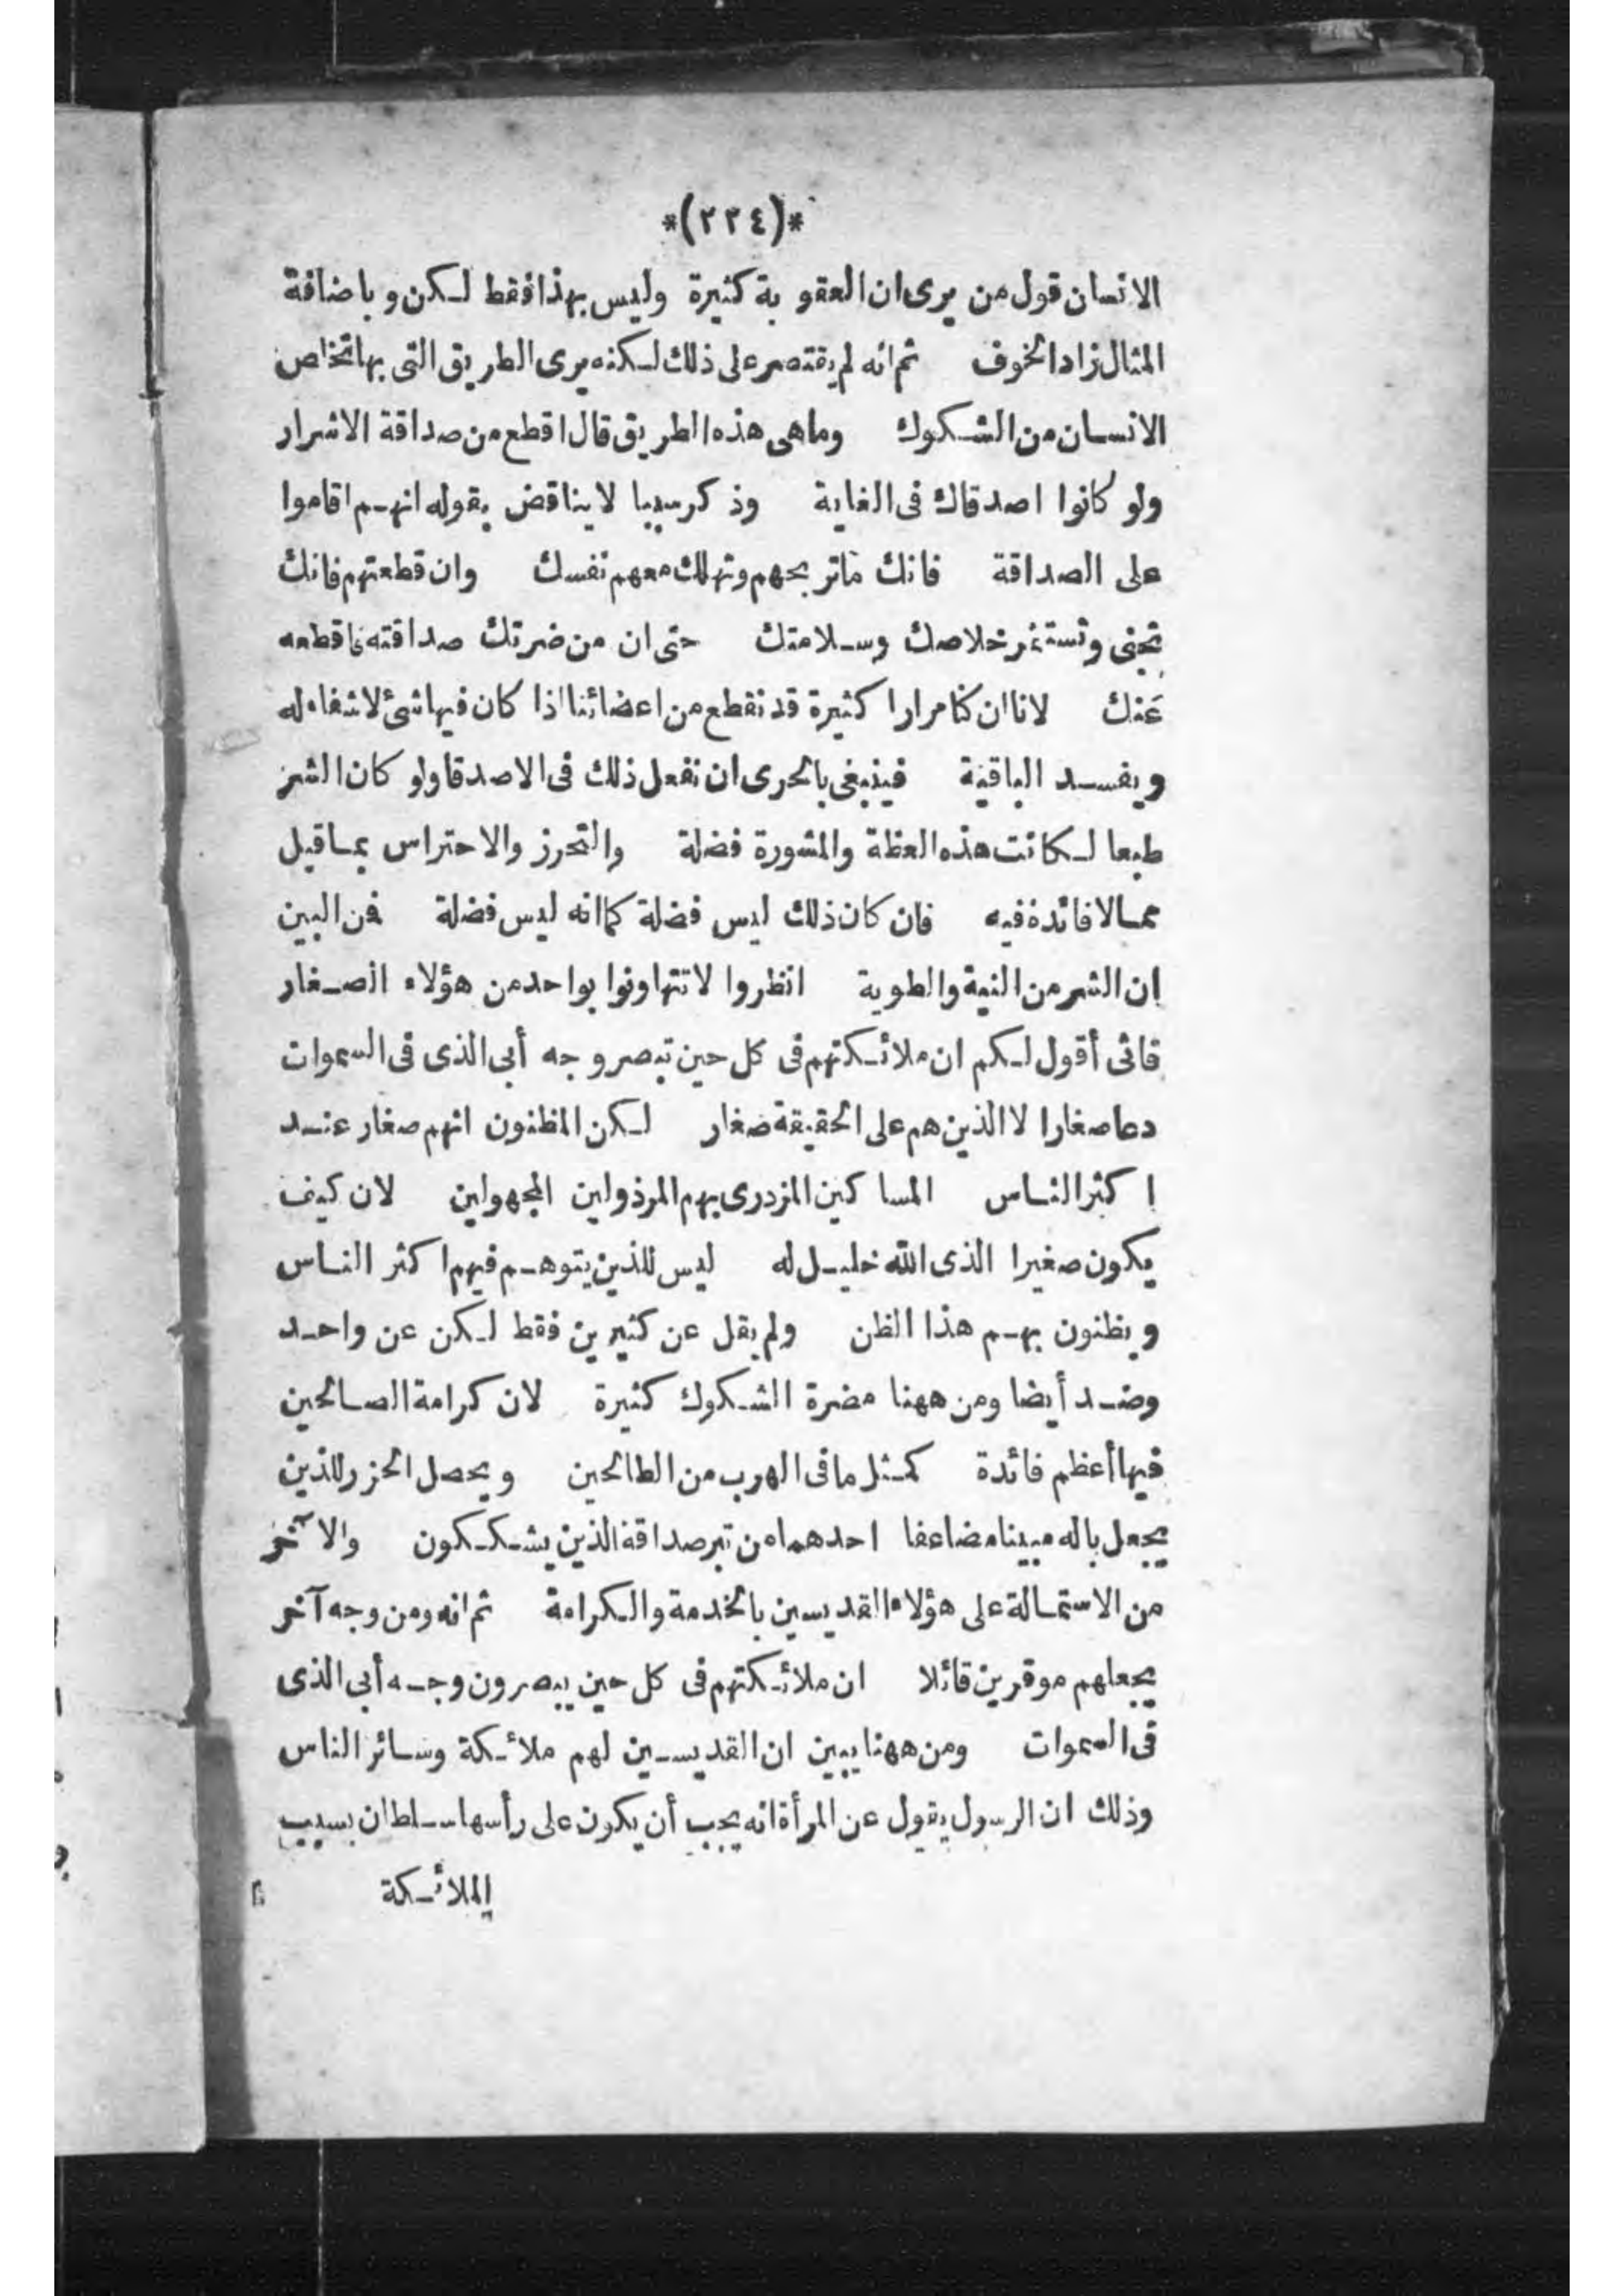 *(٢٣٤)*
الانسان قول من يرى ان العقوبة كثيرة وليس بهذا فقط لكن وباضافة
المثال زاد الخوف ثم انه لم يقتصر على ذلك لكنه يرى الطريق التى بها تخلص
الانسان من الشكوك وما هى هذه الطريق قال اقطع من صداقة الاشرار
ولو كانوا اصدقاك فى الغاية وذكر سببا لا يناقض بقوله انهم اقاموا
على الصداقة فانك ما تربحهم وتهلك معهم نفسك وان قطعتهم فانك
تجنى وتستثمر خلاصك وسلامتك حتى ان من ضرتك صداقته فاقطعه
عنك لانا ان كنا مرارا كثيرة قد نقطع من اعضائنا اذا كان فيها شئ لا شفاء له
ويفسد الباقية فينبغى بالحرى ان نفعل ذلك فى الاصدقا ولو كان الشر
طبعا لكانت هذه العظة والمشورة فضلة والتحرز والاحتراس بما قيل
مما لا فائدة فيه فان كان ذلك ليس فضلة كما انه ليس فضلة فمن البين
ان الشر من النية والطوية انظروا لا تتهاونوا بواحد من هؤلاء الصغار
فانى أقول لكم ان ملائكتهم فى كل حين تبصر وجه أبى الذى فى السموات
دعا صغارا لا الذين هم على الحقيقة صغار لكن المظنون انهم صغار عند
اكثر الناس المساكين المزدرى بهم المرذولين المجهولين لان كيف
يكون صغيرا الذى الله خليل له ليس للذين يتوهم فيهم اكثر الناس
ويظنون بهم هذا الظن ولم يقل عن كثيرين فقط لكن عن واحد
وضد أيضا ومن ههنا مضرة الشكوك كثيرة لان كرامة الصالحين
فيها أعظم فائدة كمثل ما فى الهرب من الطالحين ويحصل الحزر للذين
يجعل باله مبينا مضاعفا احدهما من تبر صداقة الذين يشككون والآخر
من الاستمالة على هؤلاء القديسين بالخدمة والكرامة ثم انه ومن وجه آخر
يجعلهم موقرين قائلا ان ملائكتهم فى كل حين يبصرون وجه أبى الذى
فى السموات ومن ههنا يبين ان القديسين لهم ملائكة وسائر الناس
وذلك ان الرسول يقول عن المرأة انه يجب أن يكون على رأسها سلطان بسبب
الملائكة